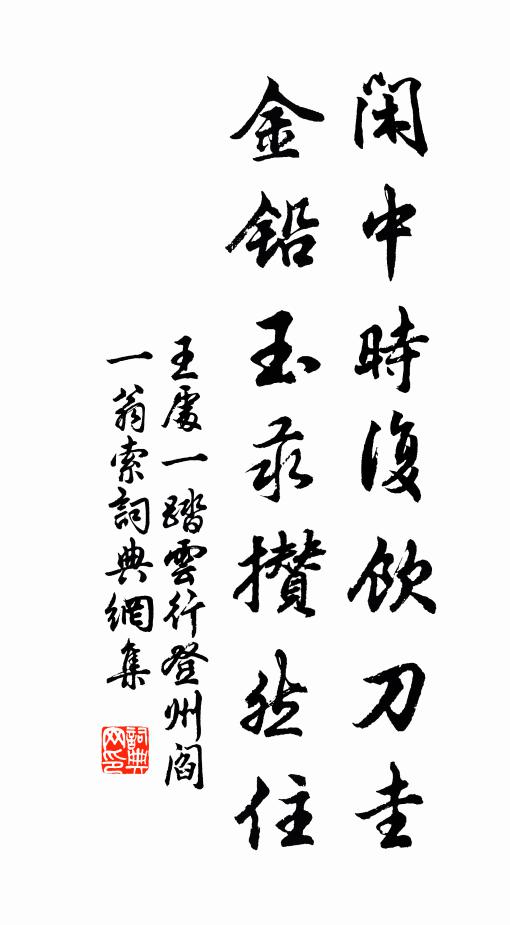 閑中時復飲刀圭
金鉛玉汞攢然住
王處一踏雲行登州閻
一翁索詞典網集
詞典网印